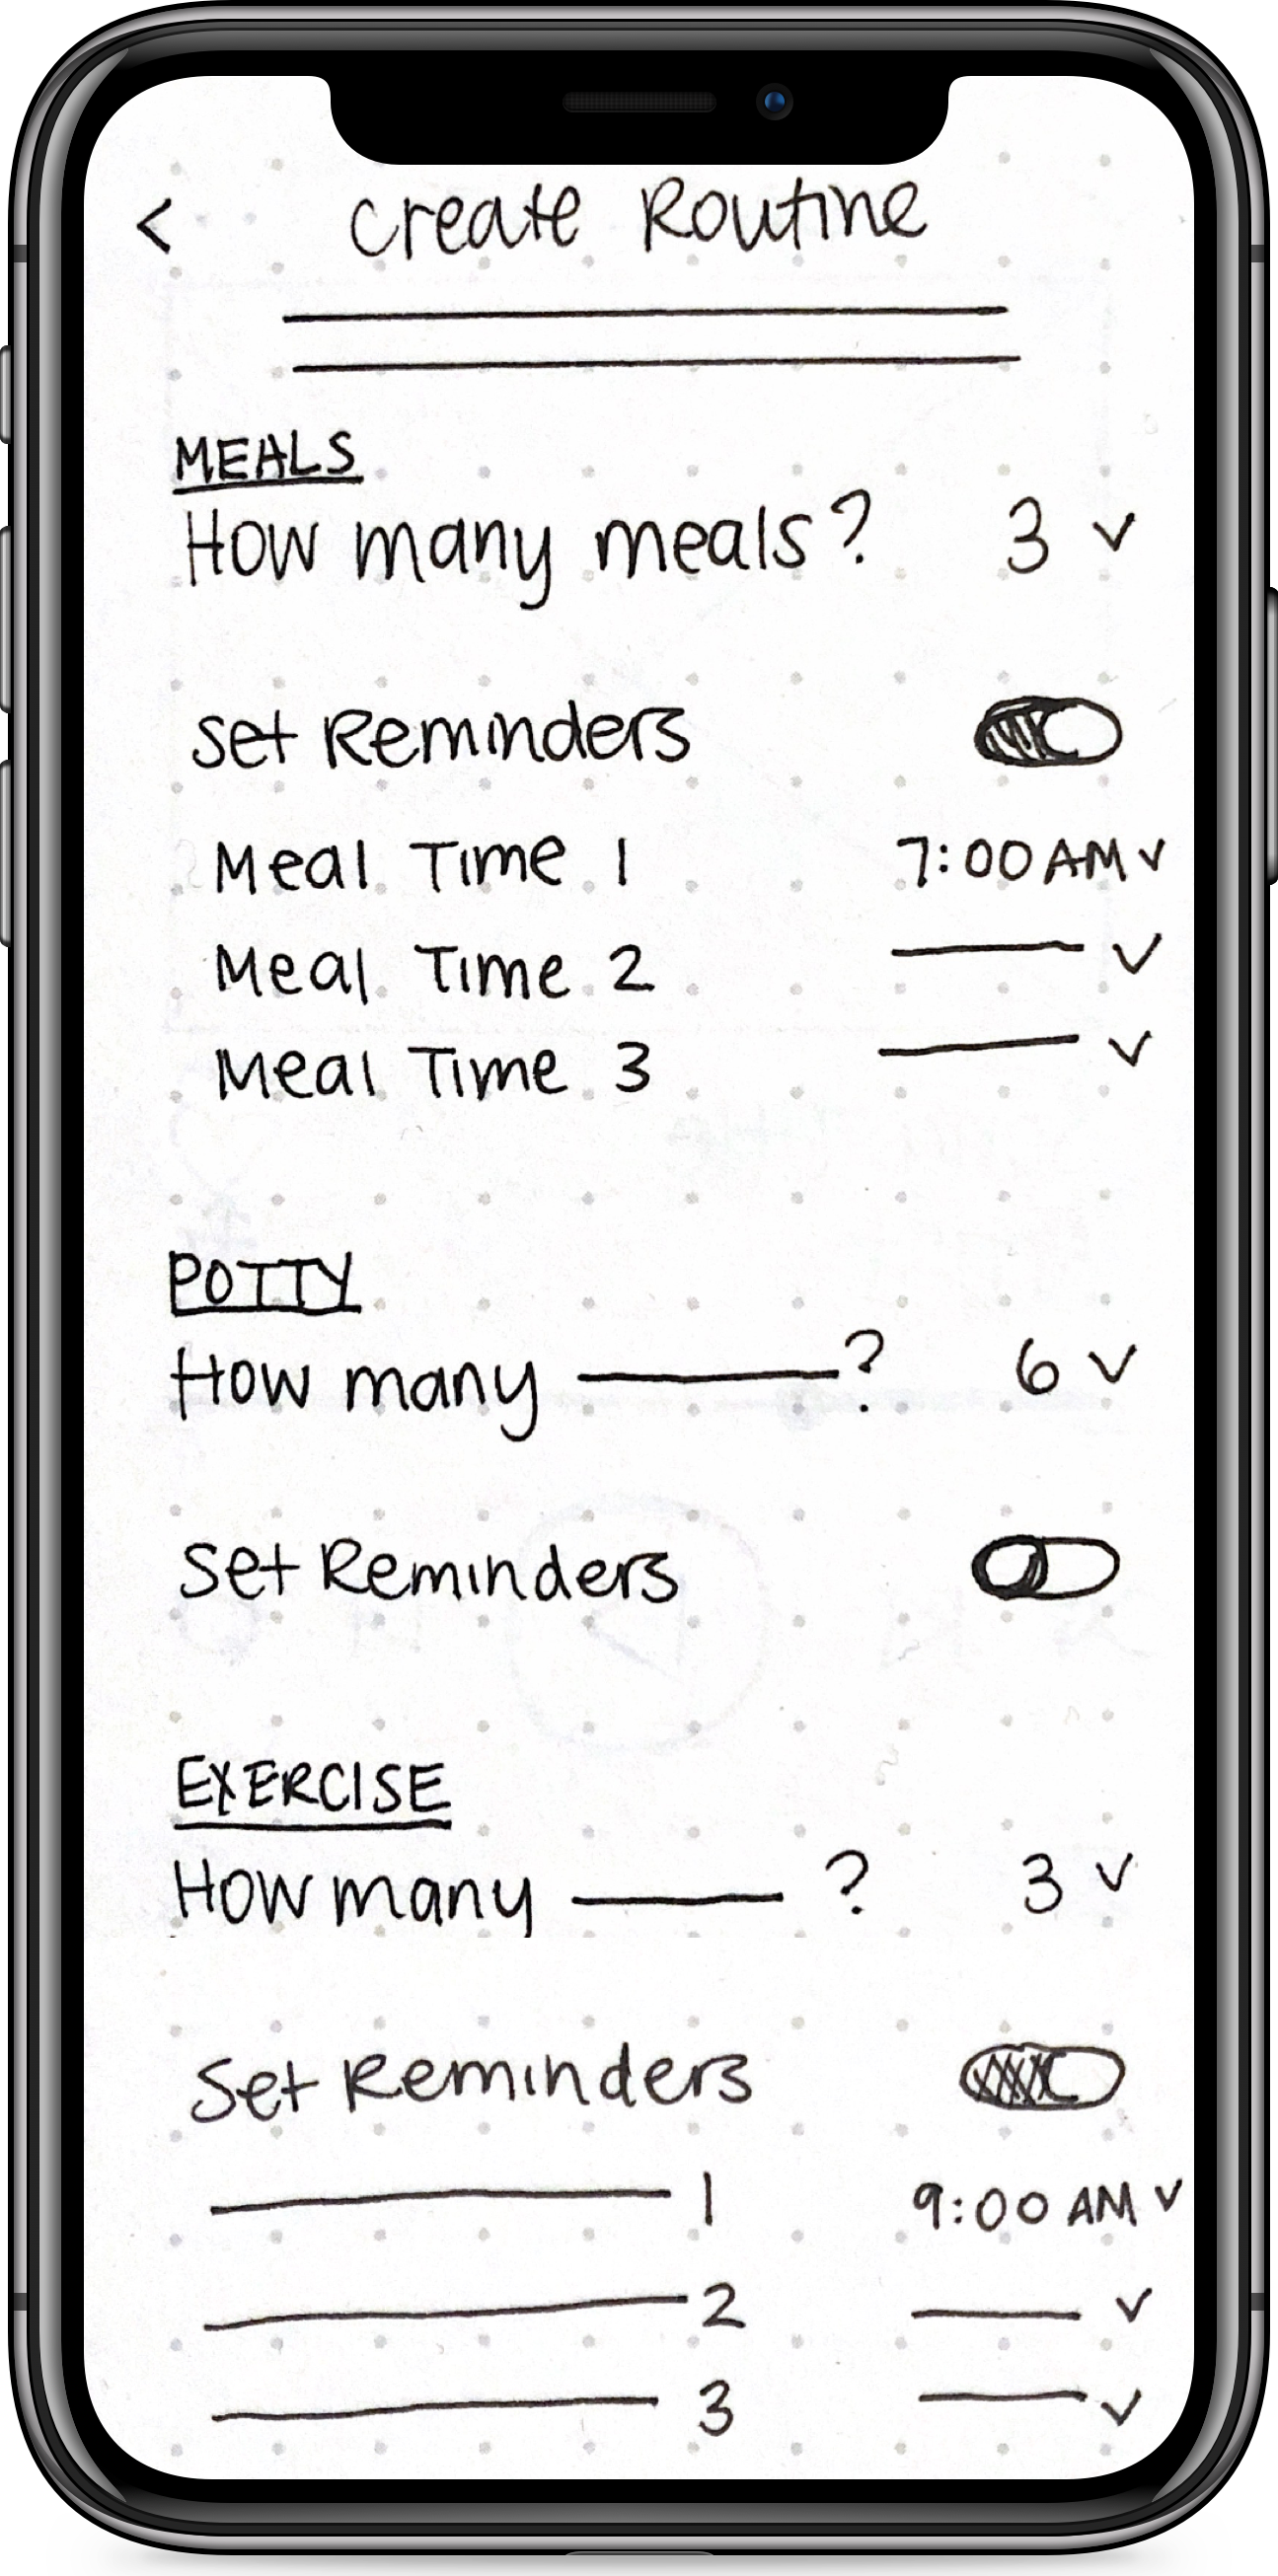 < Create Routine
MEALS
How many meals? 3
Set Reminders
Meal Time 1 7:00 AM
Meal Time 2
Meal Time 3
POTTY
How many ? 6
Set Reminders
EXERCISE
How many ? 3
Set Reminders
1 9:00 AM
2
3